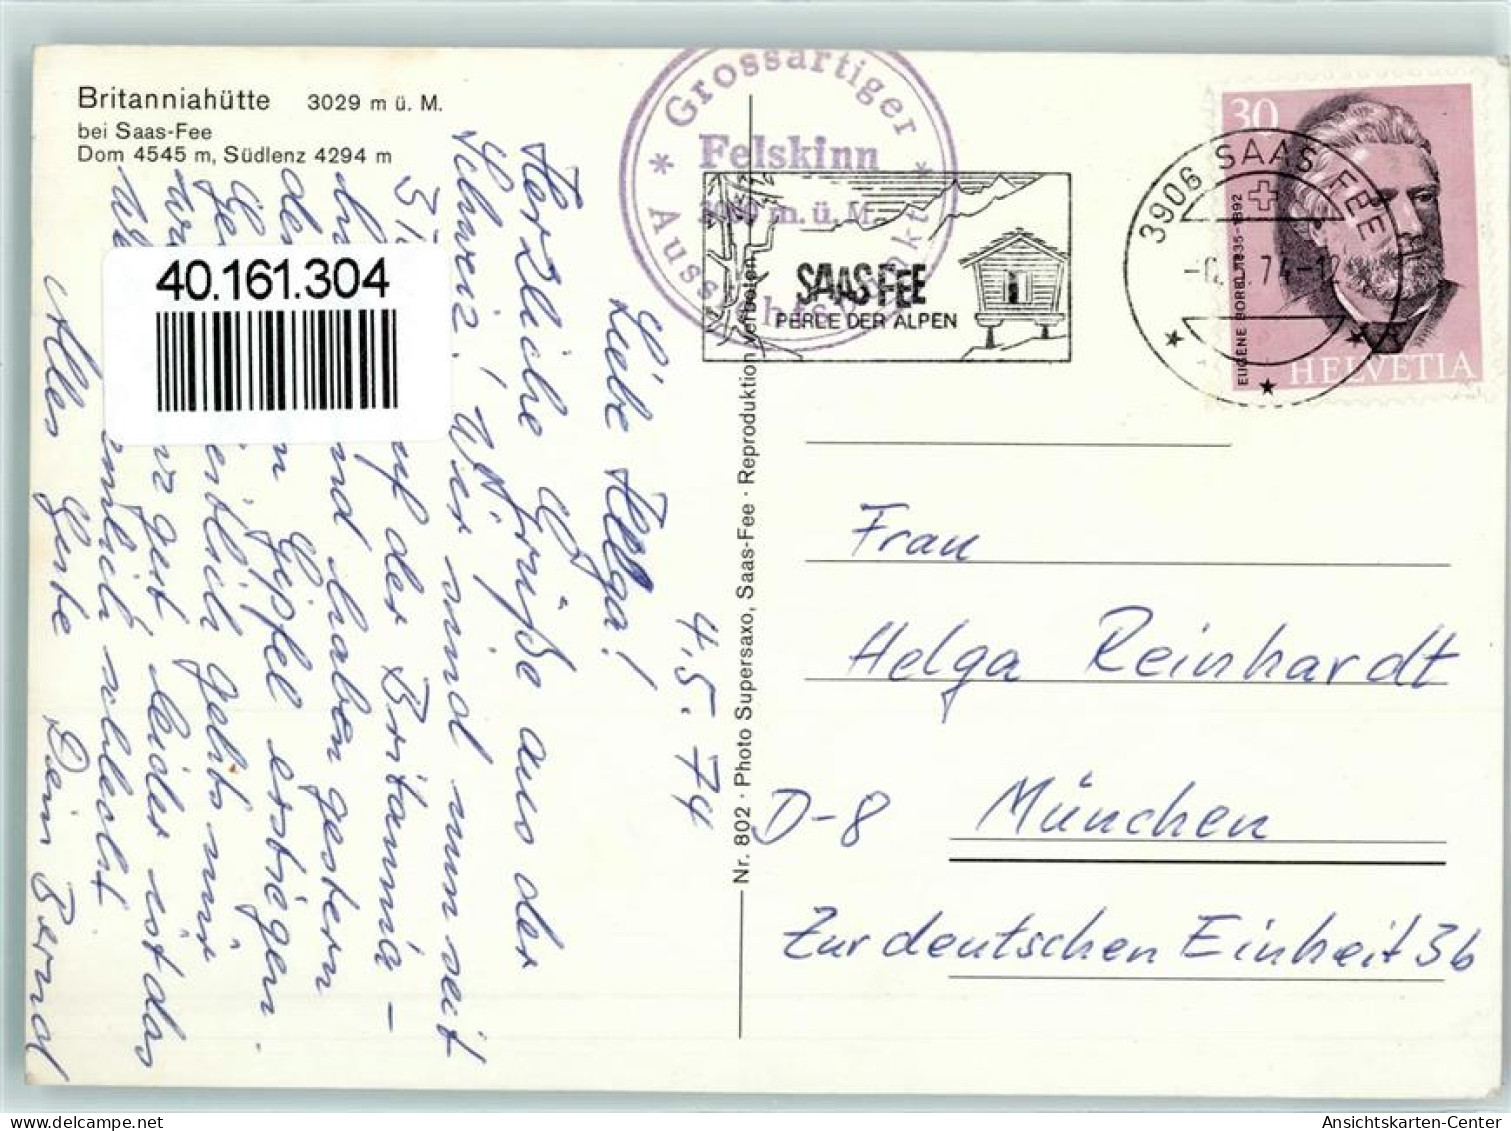 Britanniahütte 3029 m ü. M.
bei Saas-Fee
Dom 4545 m, Südlenz 4294 m
Grossartiger
Felskinn
m. ü. M.
SAAS FEE
PERLE DER ALPEN
3906 SAAS FEE
74-12
30
EUGÈNE BOREL 1835-1892
HELVETIA
40.161.304
4.5.74
Liebe Helga!
Herzliche Grüße aus der
Schweiz! Wir sind nun seit
auf der Britannia-
und haben gestern
Gipfel erstiegen.
gehts mir
gut leider ist das
schlecht
Alles Gute Dein Bernd
Nr. 802 · Photo Supersaxo, Saas-Fee · Reproduktion verboten
Frau
Helga Reinhardt
D-8 München
Zur deutschen Einheit 3b
Ansichtskarten-Center